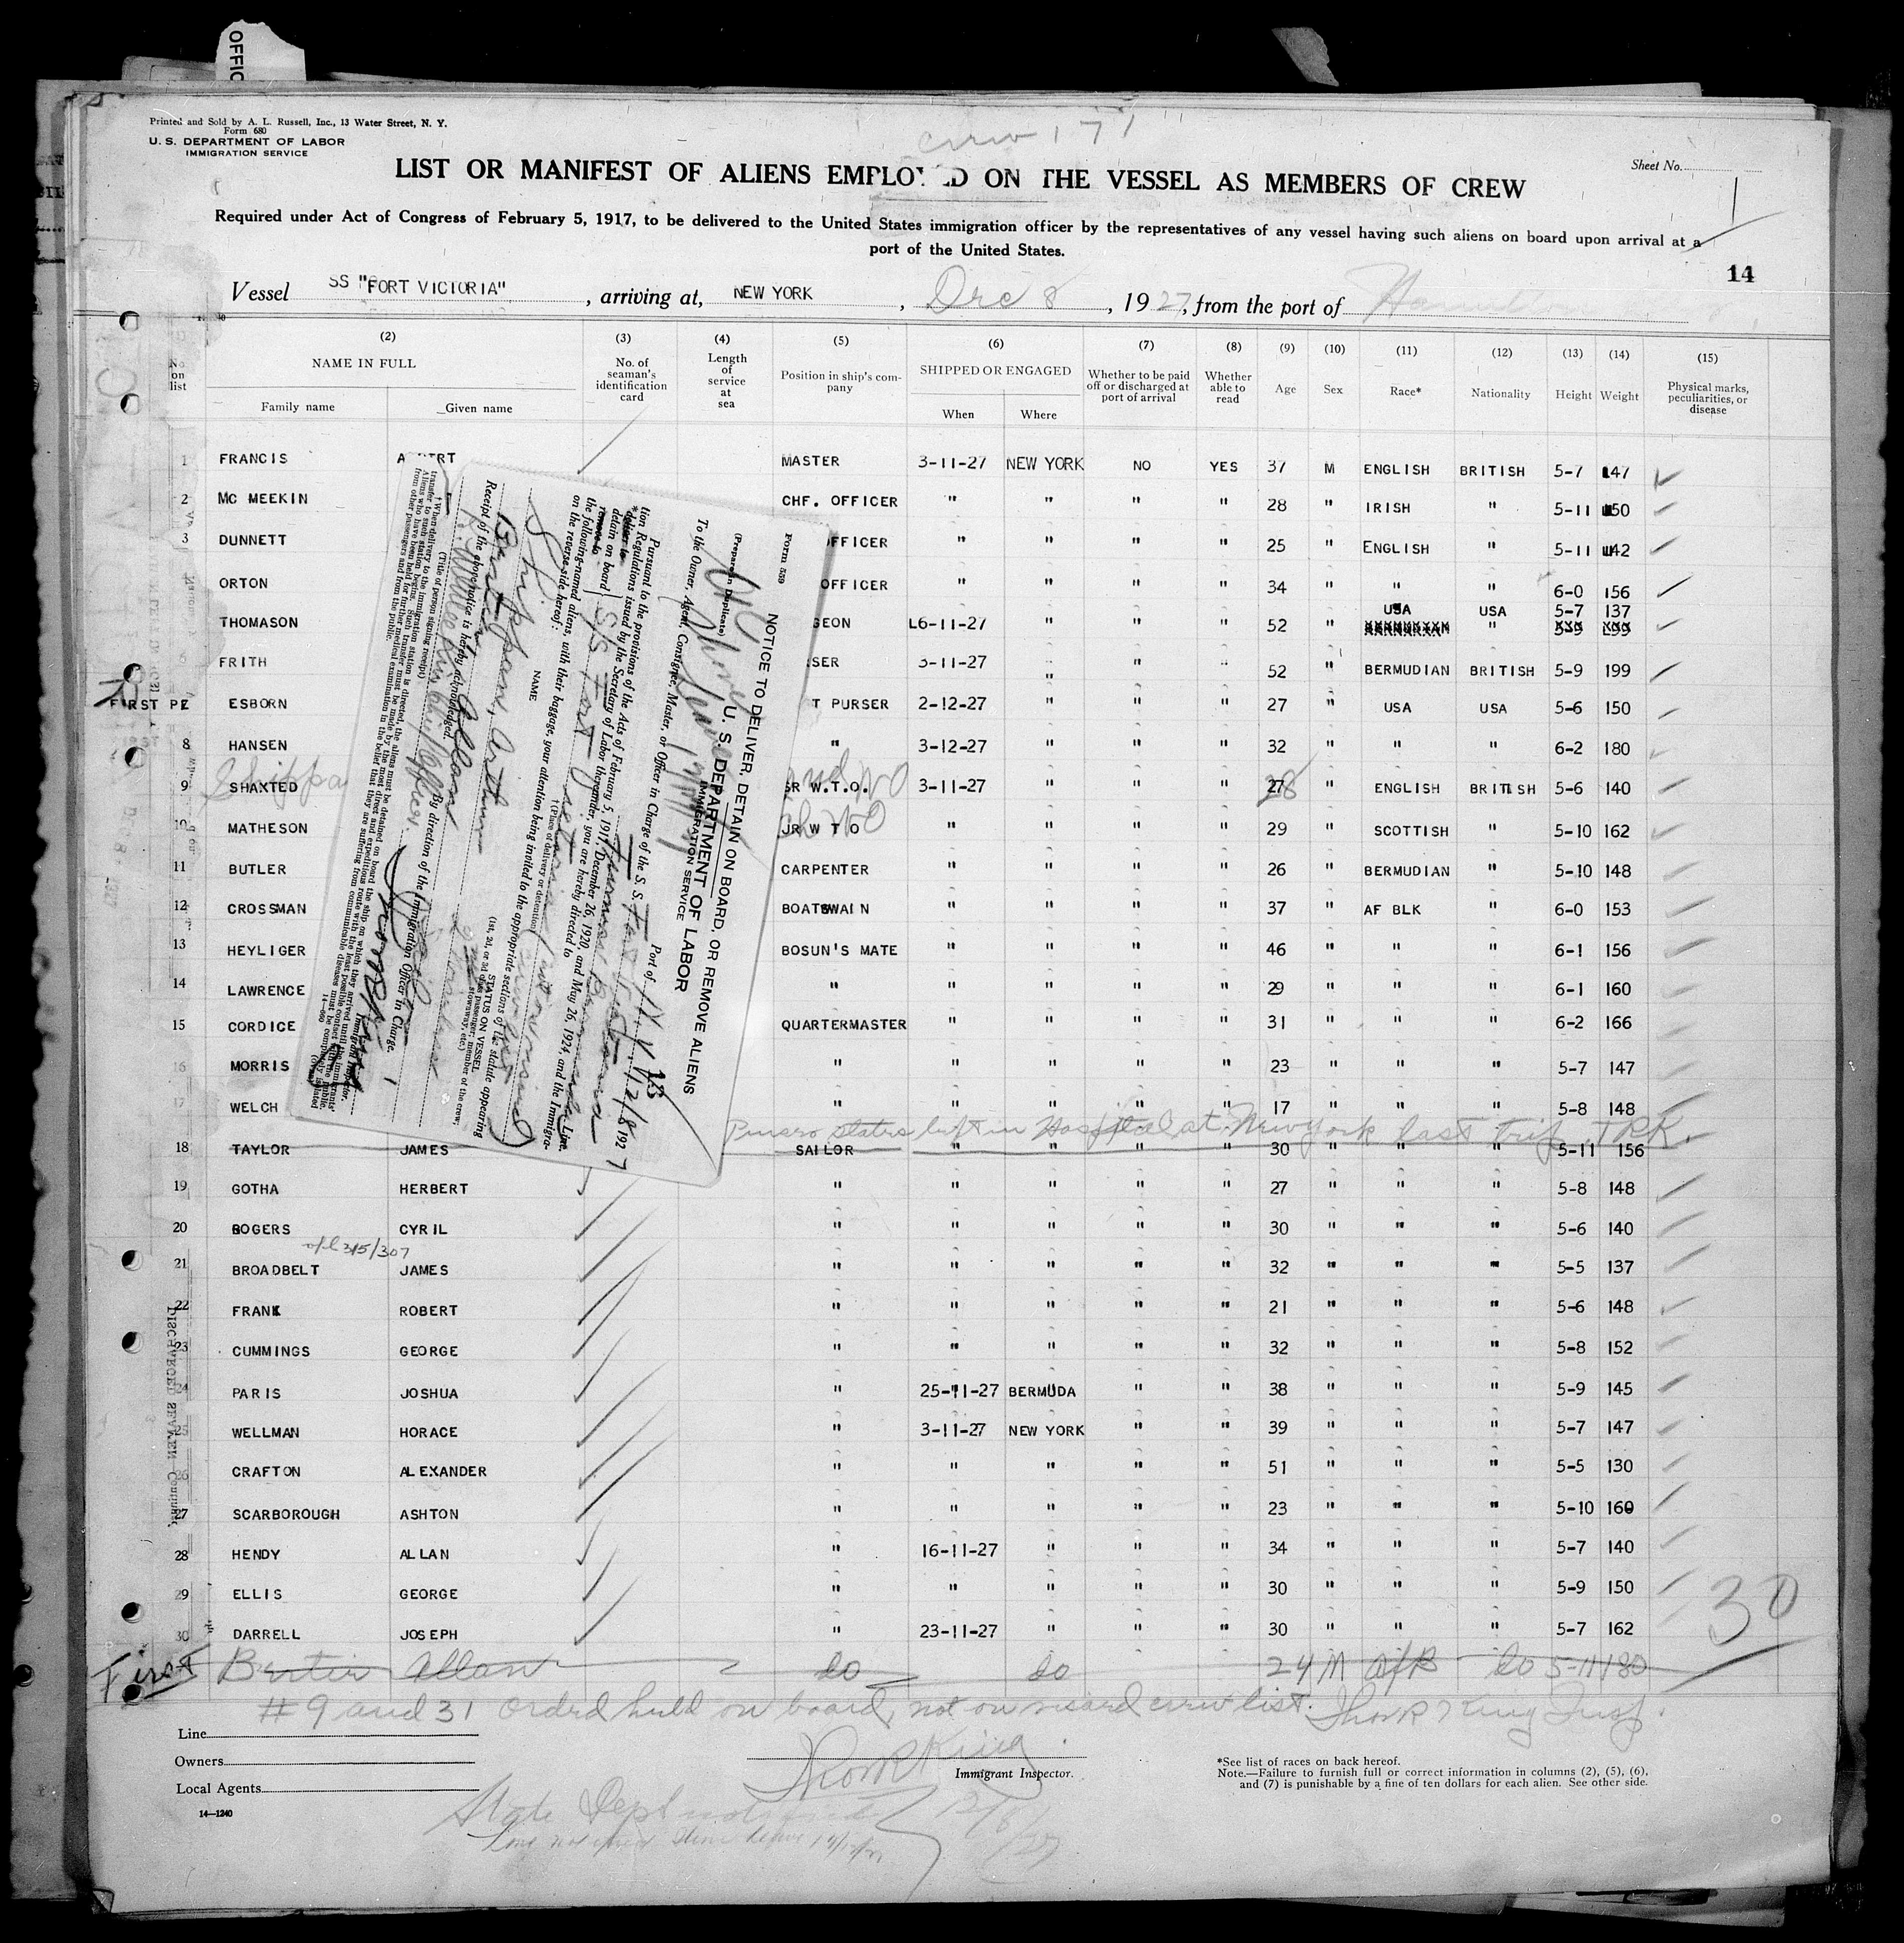 OFFIC
Printed and Sold by A. L. Russell, Inc., 13 Water Street, N. Y.
Form 680
U. S. DEPARTMENT OF LABOR
IMMIGRATION SERVICE
crew 171
Sheet No.
1
LIST OR MANIFEST OF ALIENS EMPLOY D ON THE VESSEL AS MEMBERS OF CREW
Required under Act of Congress of February 5, 1917, to be delivered to the United States immigration officer by the representatives of any vessel having such aliens on board upon arrival at a
port of the United States.
14
Vessel SS "FORT VICTORIA", arriving at, NEW YORK, Dec 8, 1927, from the port of Hamilton
(2) (3) (4) (5) (6) (7) (8) (9) (10) (11) (12) (13) (14) (15)
No. on list NAME IN FULL No. of seaman's identification card Length of service at sea Position in ship's company SHIPPED OR ENGAGED Whether to be paid off or discharged at port of arrival Whether able to read Age Sex Race* Nationality Height Weight Physical marks, peculiarities, or disease
Family name Given name When Where
1 FRANCIS MASTER 3-11-27 NEW YORK NO YES 37 M ENGLISH BRITISH 5-7 147
2 MC MEEKIN CHF. OFFICER " " " " 28 " IRISH " 5-11 150
3 DUNNETT FFICER " " " " 25 " ENGLISH " 5-11 142
ORTON OFFICER " " " " 34 " " " 6-0 156
USA USA 5-7 137
THOMASON GEON L6-11-27 " " " 52 " "
FRITH SER 3-11-27 " " " 52 " BERMUDIAN BRITISH 5-9 199
FIRST PE ESBORN T PURSER 2-12-27 " " " 27 " USA USA 5-6 150
8 HANSEN " 3-12-27 " " " 32 " " " 6-2 180
Shippa
9 SHAXTED SR W.T.O. 3-11-27 " " " 27 28 " ENGLISH BRITISH 5-6 140
10 MATHESON JR W T O " " " " 29 " SCOTTISH " 5-10 162
11 BUTLER CARPENTER " " " " 26 " BERMUDIAN " 5-10 148
12 CROSSMAN BOATSWAIN " " " " 37 " AF BLK " 6-0 153
13 HEYLIGER BOSUN'S MATE " " " " 46 " " " 6-1 156
14 LAWRENCE " " " " " 29 " " " 6-1 160
15 CORDICE QUARTERMASTER " " " " 31 " " " 6-2 166
16 MORRIS " " " " " 23 " " " 5-7 147
17 WELCH " " " " " 17 " " " 5-8 148
Purser states left in Hospital at New York last trip. TRK.
18 TAYLOR JAMES SAILOR " " " " 30 " " " 5-11 156
19 GOTHA HERBERT " " " " " 27 " " " 5-8 148
20 ROGERS CYRIL " " " " " 30 " " " 5-6 140
315/307
21 BROADBELT JAMES " " " " " 32 " " " 5-5 137
22 FRANK ROBERT " " " " " 21 " " " 5-6 148
23 CUMMINGS GEORGE " " " " " 32 " " " 5-8 152
24 PARIS JOSHUA " 25-11-27 BERMUDA " " 38 " " " 5-9 145
25 WELLMAN HORACE " 3-11-27 NEW YORK " " 39 " " " 5-7 147
26 CRAFTON ALEXANDER " " " " " 51 " " " 5-5 130
27 SCARBOROUGH ASHTON " " " " " 23 " " " 5-10 160
28 HENDY ALLAN " 16-11-27 " " " 34 " " " 5-7 140
29 ELLIS GEORGE " " " " " 30 " " " 5-9 150
30 DARRELL JOSEPH " 23-11-27 " " " 30 " " " 5-7 162
30
First Allan do do 24 M Af B do 5-11 180
# 9 and 31 ordrd held on board, not on visaed crew list. Thos R King Insp.
Line
Owners
Local Agents
14—1240
Thos R King
Immigrant Inspector.
*See list of races on back hereof.
Note.—Failure to furnish full or correct information in columns (2), (5), (6),
and (7) is punishable by a fine of ten dollars for each alien. See other side.
State Dept notified 12/8/27
DISCHARGED SEAMEN Continued.
Form 559
(Prepare in Duplicate)
NOTICE TO DELIVER, DETAIN ON BOARD, OR REMOVE ALIENS
U. S. DEPARTMENT OF LABOR
IMMIGRATION SERVICE
Port of N.Y. 12/8 1927
To the Owner, Agent, Consignee, Master, or Officer in Charge of the S. S. Fort Victoria
Furness Bermuda Line.
Pursuant to the provisions of the Acts of February 5, 1917, December 26, 1920, and May 26, 1924, and the Immigra-
tion Regulations issued by the Secretary of Labor thereunder, you are hereby directed to
*deliver to
detain on board
remove to
S/S Fort
(Place of delivery or detention)
the following-named aliens, with their baggage, your attention being invited to the appropriate sections of the statute appearing
on the reverse side hereof:
NAME
STATUS ON VESSEL
(1st, 2d, or 3d class passenger, member of the crew,
stowaway, etc.)
Shippam, Arthur
Allan
By direction of the Immigration Officer in Charge.
Immigrant Inspector.
Receipt of the above notice is hereby acknowledged.
Chief Officer.
(Title of person signing receipt)
14—660